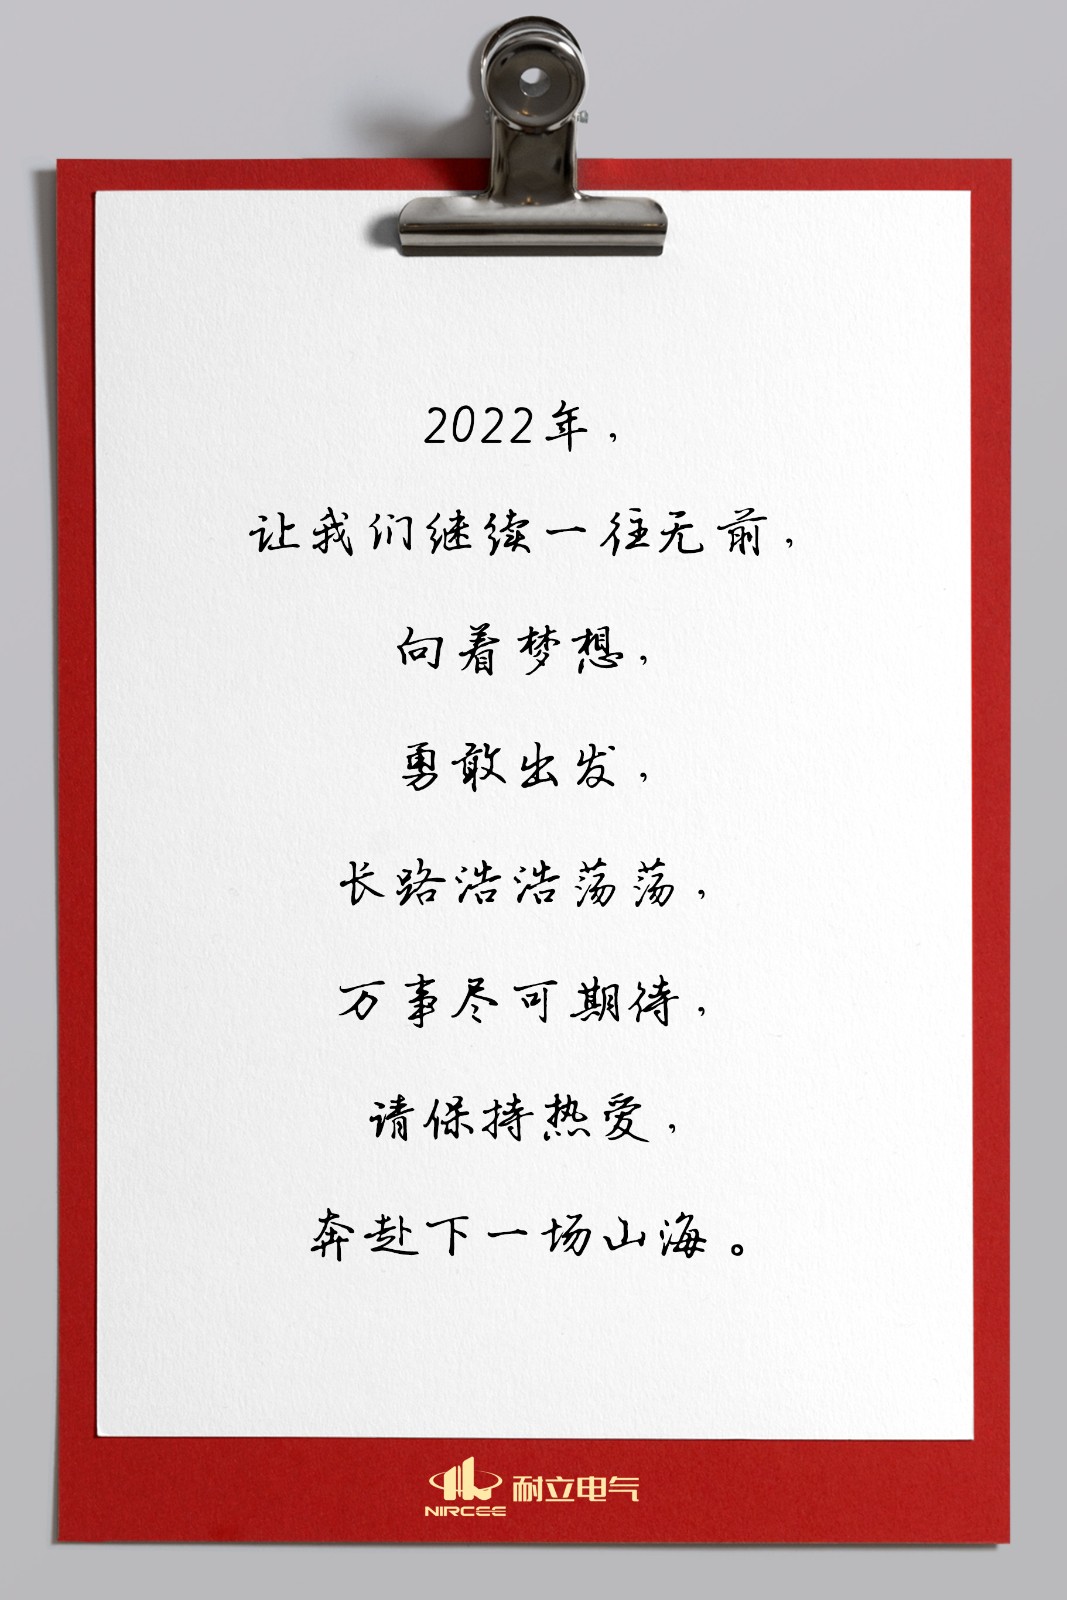 2022年，
让我们继续一往无前，
向着梦想，
勇敢出发，
长路浩浩荡荡，
万事尽可期待，
请保持热爱，
奔赴下一场山海。
NIRCEE 耐立电气